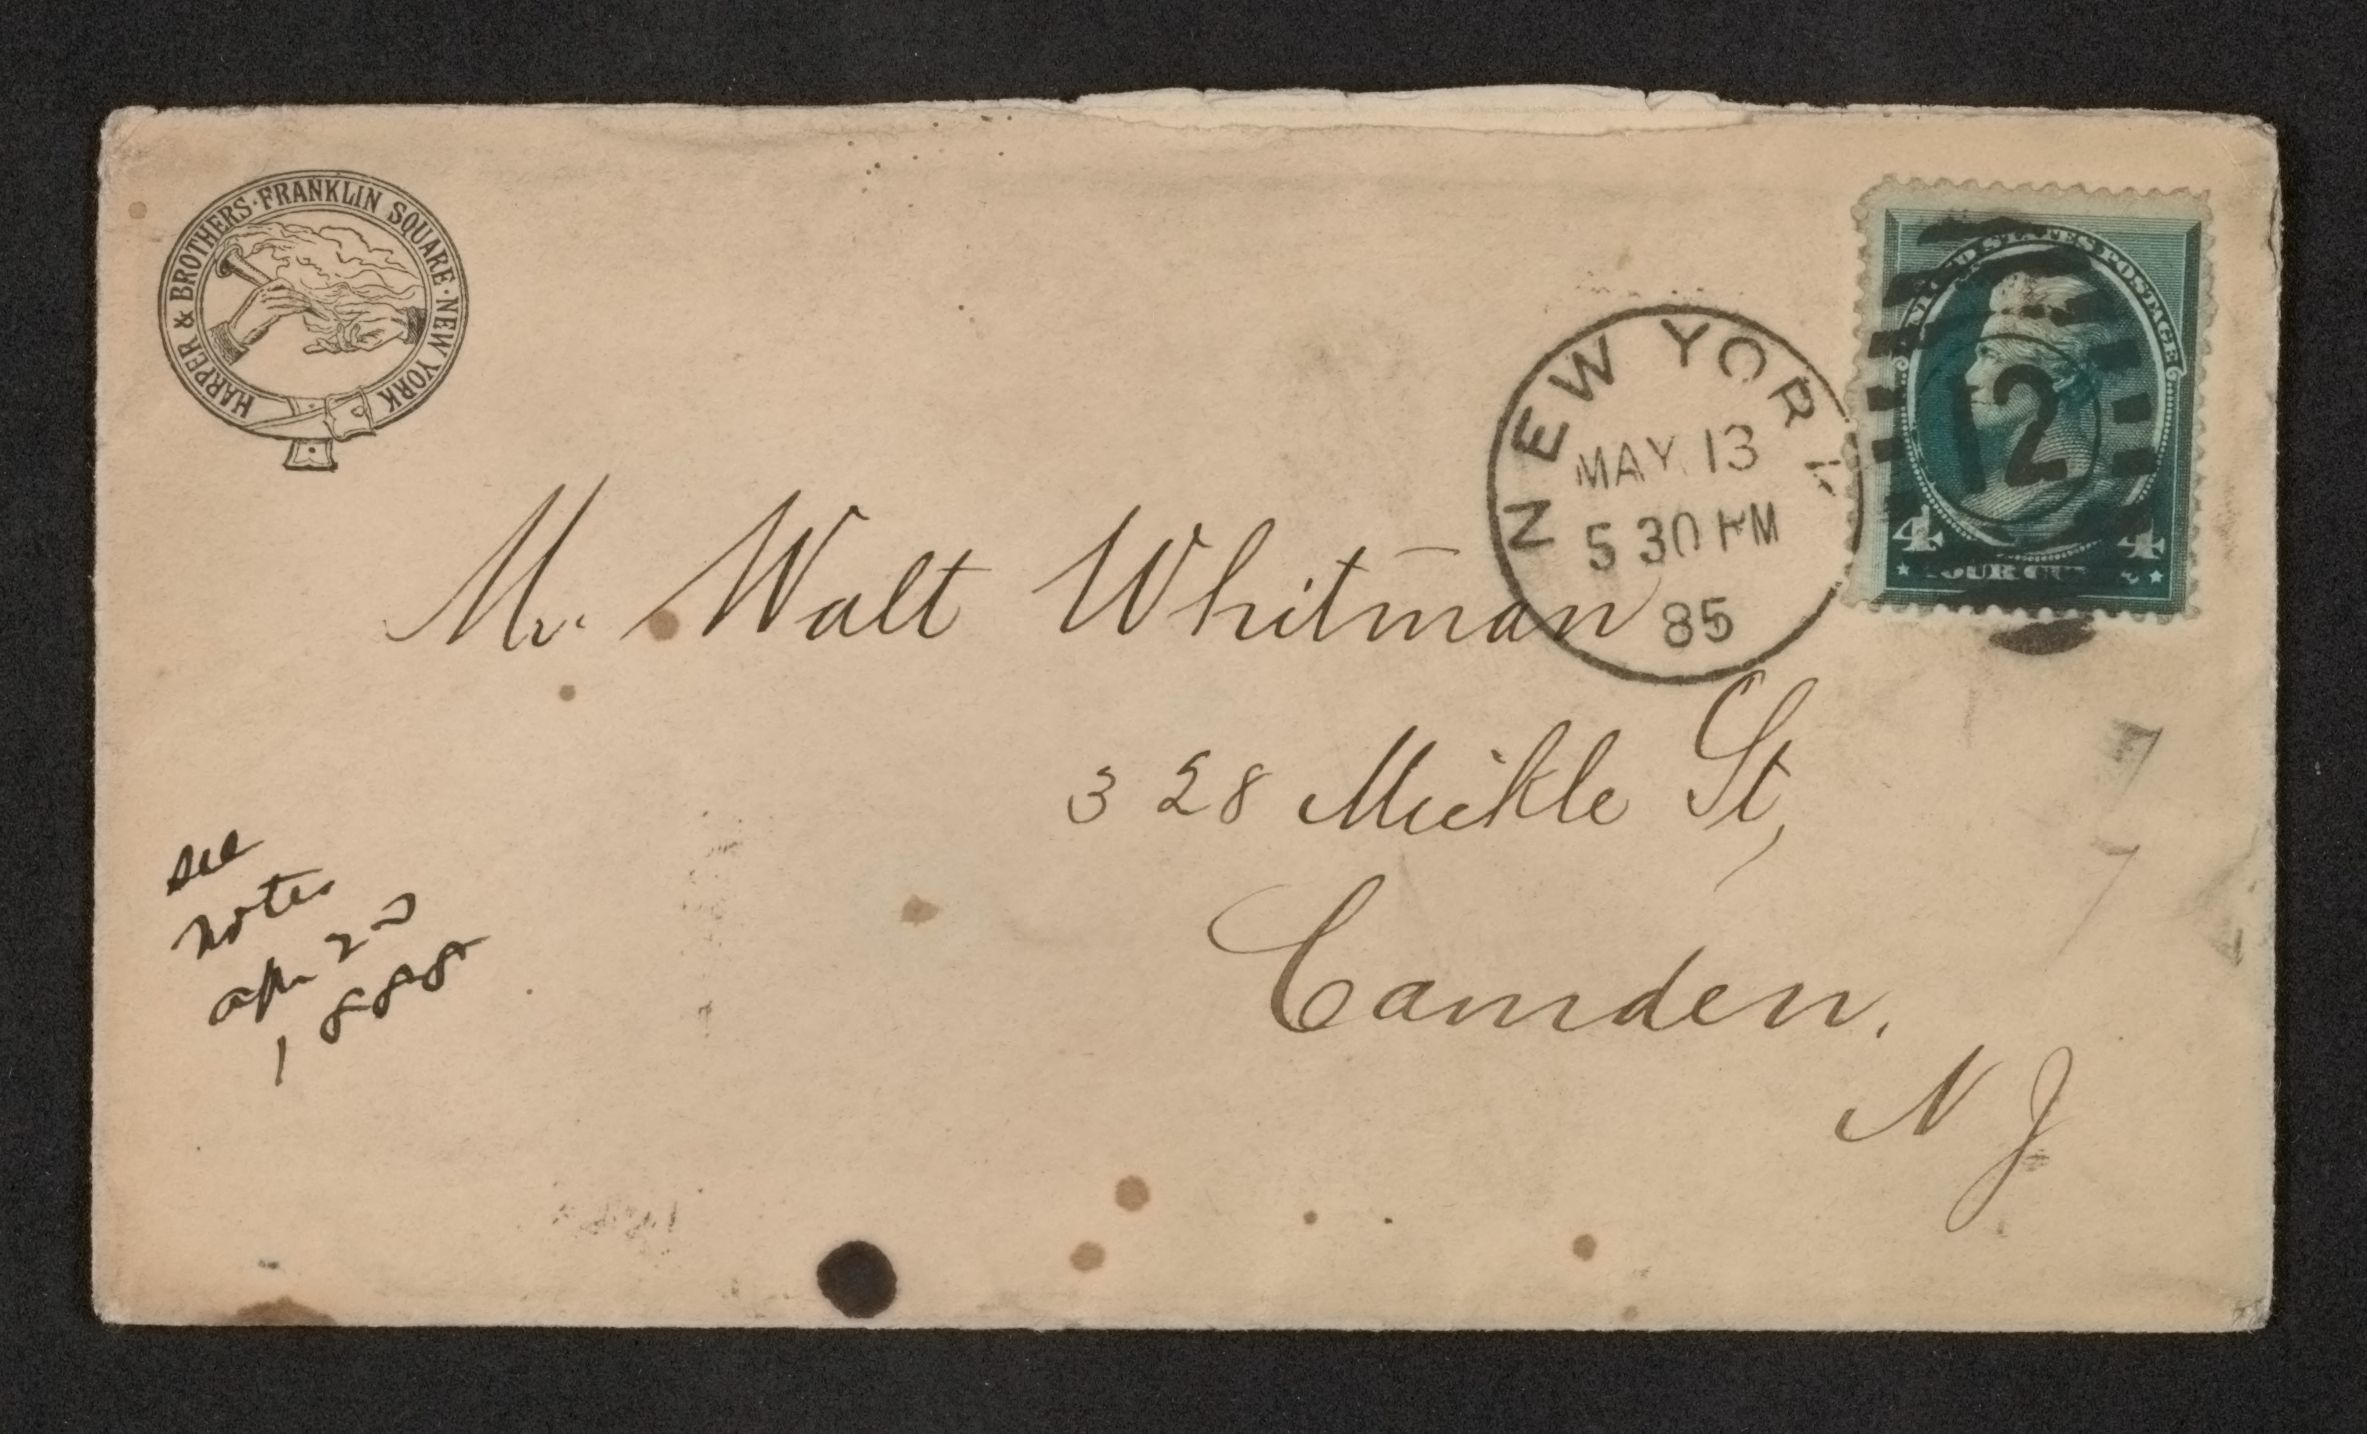 HARPER & BROTHERS · FRANKLIN SQUARE · NEW YORK
UNITED STATES POSTAGE
NEW YORK
MAY 13
5 30 PM
85
12
4 4
Mr. Walt Whitman
328 Mickle St,
Camden.
N J
see
notes
apr 22
1888